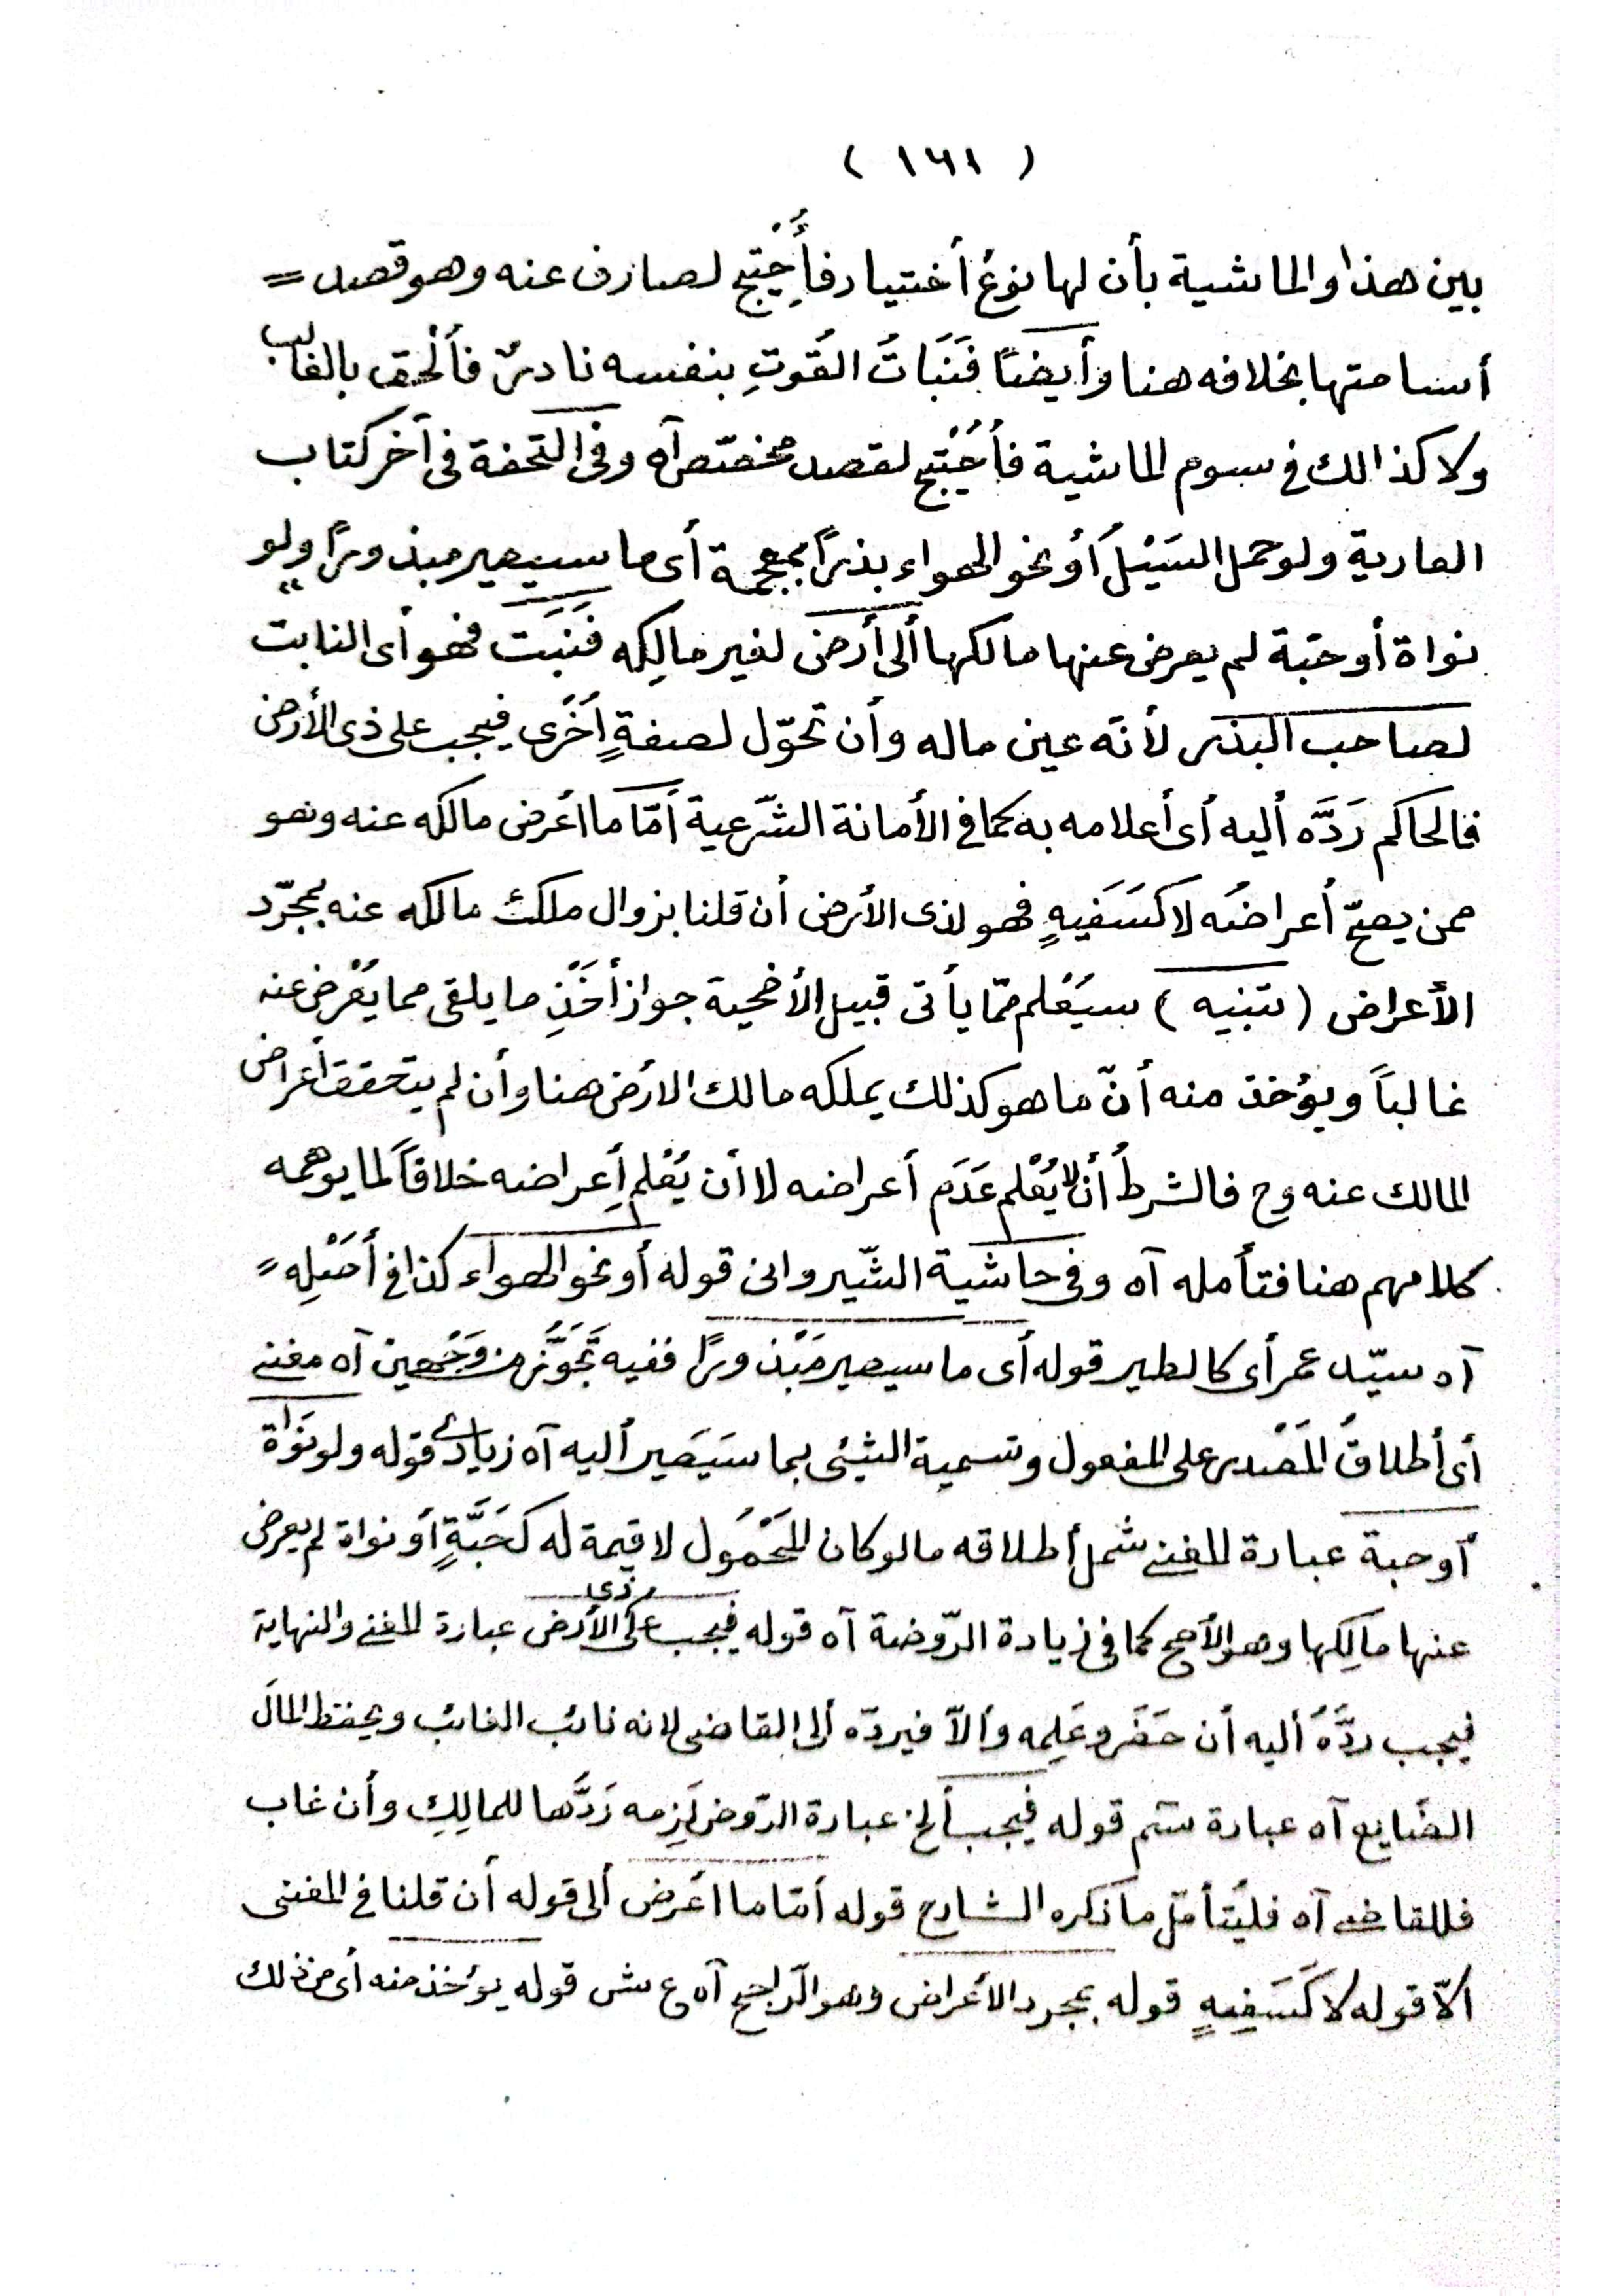 ( ١٦١ )
بين هذا والماشية بأن لها نوعُ أختيار فأُحِتْيج لصارف عنه وهو قصد =
أسامتها بخلافه هنا وأيضًا فَنَبَاتُ القُوتِ بنفسه نادرٌ فأُلْحق بالغالب
ولا كذالك فى سوم الماشية فأُحْتِيْج لقصد مخصّص آه وفى التحفة فى آخر كتاب
العارية ولو حمل السَيْلُ أو نحو الهواء بذرًا بمعجمة أى ما سيصير مبذورًا ولو
نواة أو حبّة لم يعرض عنها مالكها ألى أرض لغير مالِكِه فَنَبَت فهو أى النابت
لصاحب البذر لأنّه عين ماله وأن تحوّل لصفةٍ أُخْرى فيجب على ذى الأرض
فالحاكم رَدَّه أليه أى أعلامه به كما فى الأمانة الشّرعية أمّا ما أعرض مالكه عنه وهو
ممن يصحّ أعراضُه لا كَسَفَيهٍ فهو لذى الأرض أن قلنا بزوال ملك مالكه عنه بمجرّد
الأعراض ( تنبيه ) سيُعْلم ممّا يأتى قبيل الأضحية جواز أَخْذِ ما يلقى مما يُعْرض عنه
غالباً ويؤخذ منه أنّ ما هو كذلك يملكه مالك الارض هنا وأن لم يتحقق أعراض
المالك عنه وح فالشرطُ أن لا يُعْلم عَدَم أعراضه لا أن يُعْلم أِعراضه خلافاً لما يوهمه
كلامهم هنا فتأمله آه وفى حاشية الشّيروانى قوله أو نحو الهواء كذا فى أَصْلِه =
آه سيّد عمر أى كالطير قوله أى ما سيصير مَبْذورًا ففيه تَجَوُّز من وَجْهين آه مغنى
أى أطلاقُ المَصْدر على المفعول وتسمية الشئ بما سَيَصَير أليه آه زيادى قوله ولو نَوَاة
أو حبة عبارة المغنى شمل أطلاقه ما لو كان المَحْمُول لا قيمة له كحَبَّةٍ أو نواة لم يعرض
عنها مالِكها وهو الأصح كما فى زيادة الرّوضة آه قوله فيجب على ذى الأرض عبارة المغنى والنهاية
فيجب ردُّهُ أليه أن حَضَر وعَلِمه وألاّ فيردّه ألى القاضى لانه نائب الغائب ويحفظ المالَ
الضَايع آه عبارة سم قوله فيجب ألخ عبارة الرّوض لَزِمه رَدُّها للمالِكِ وأن غاب
فللقاضى آه فليُتأمّل ما ذكره الشارح قوله أمّا ما أعْرض ألى قوله أن قلنا فى المغنى
ألاّ قوله لا كَسَفِيهٍ قوله بمجرد الأعْراض وهو الرّاجح آه ع ش قوله يؤخذ منه أى من ذلك